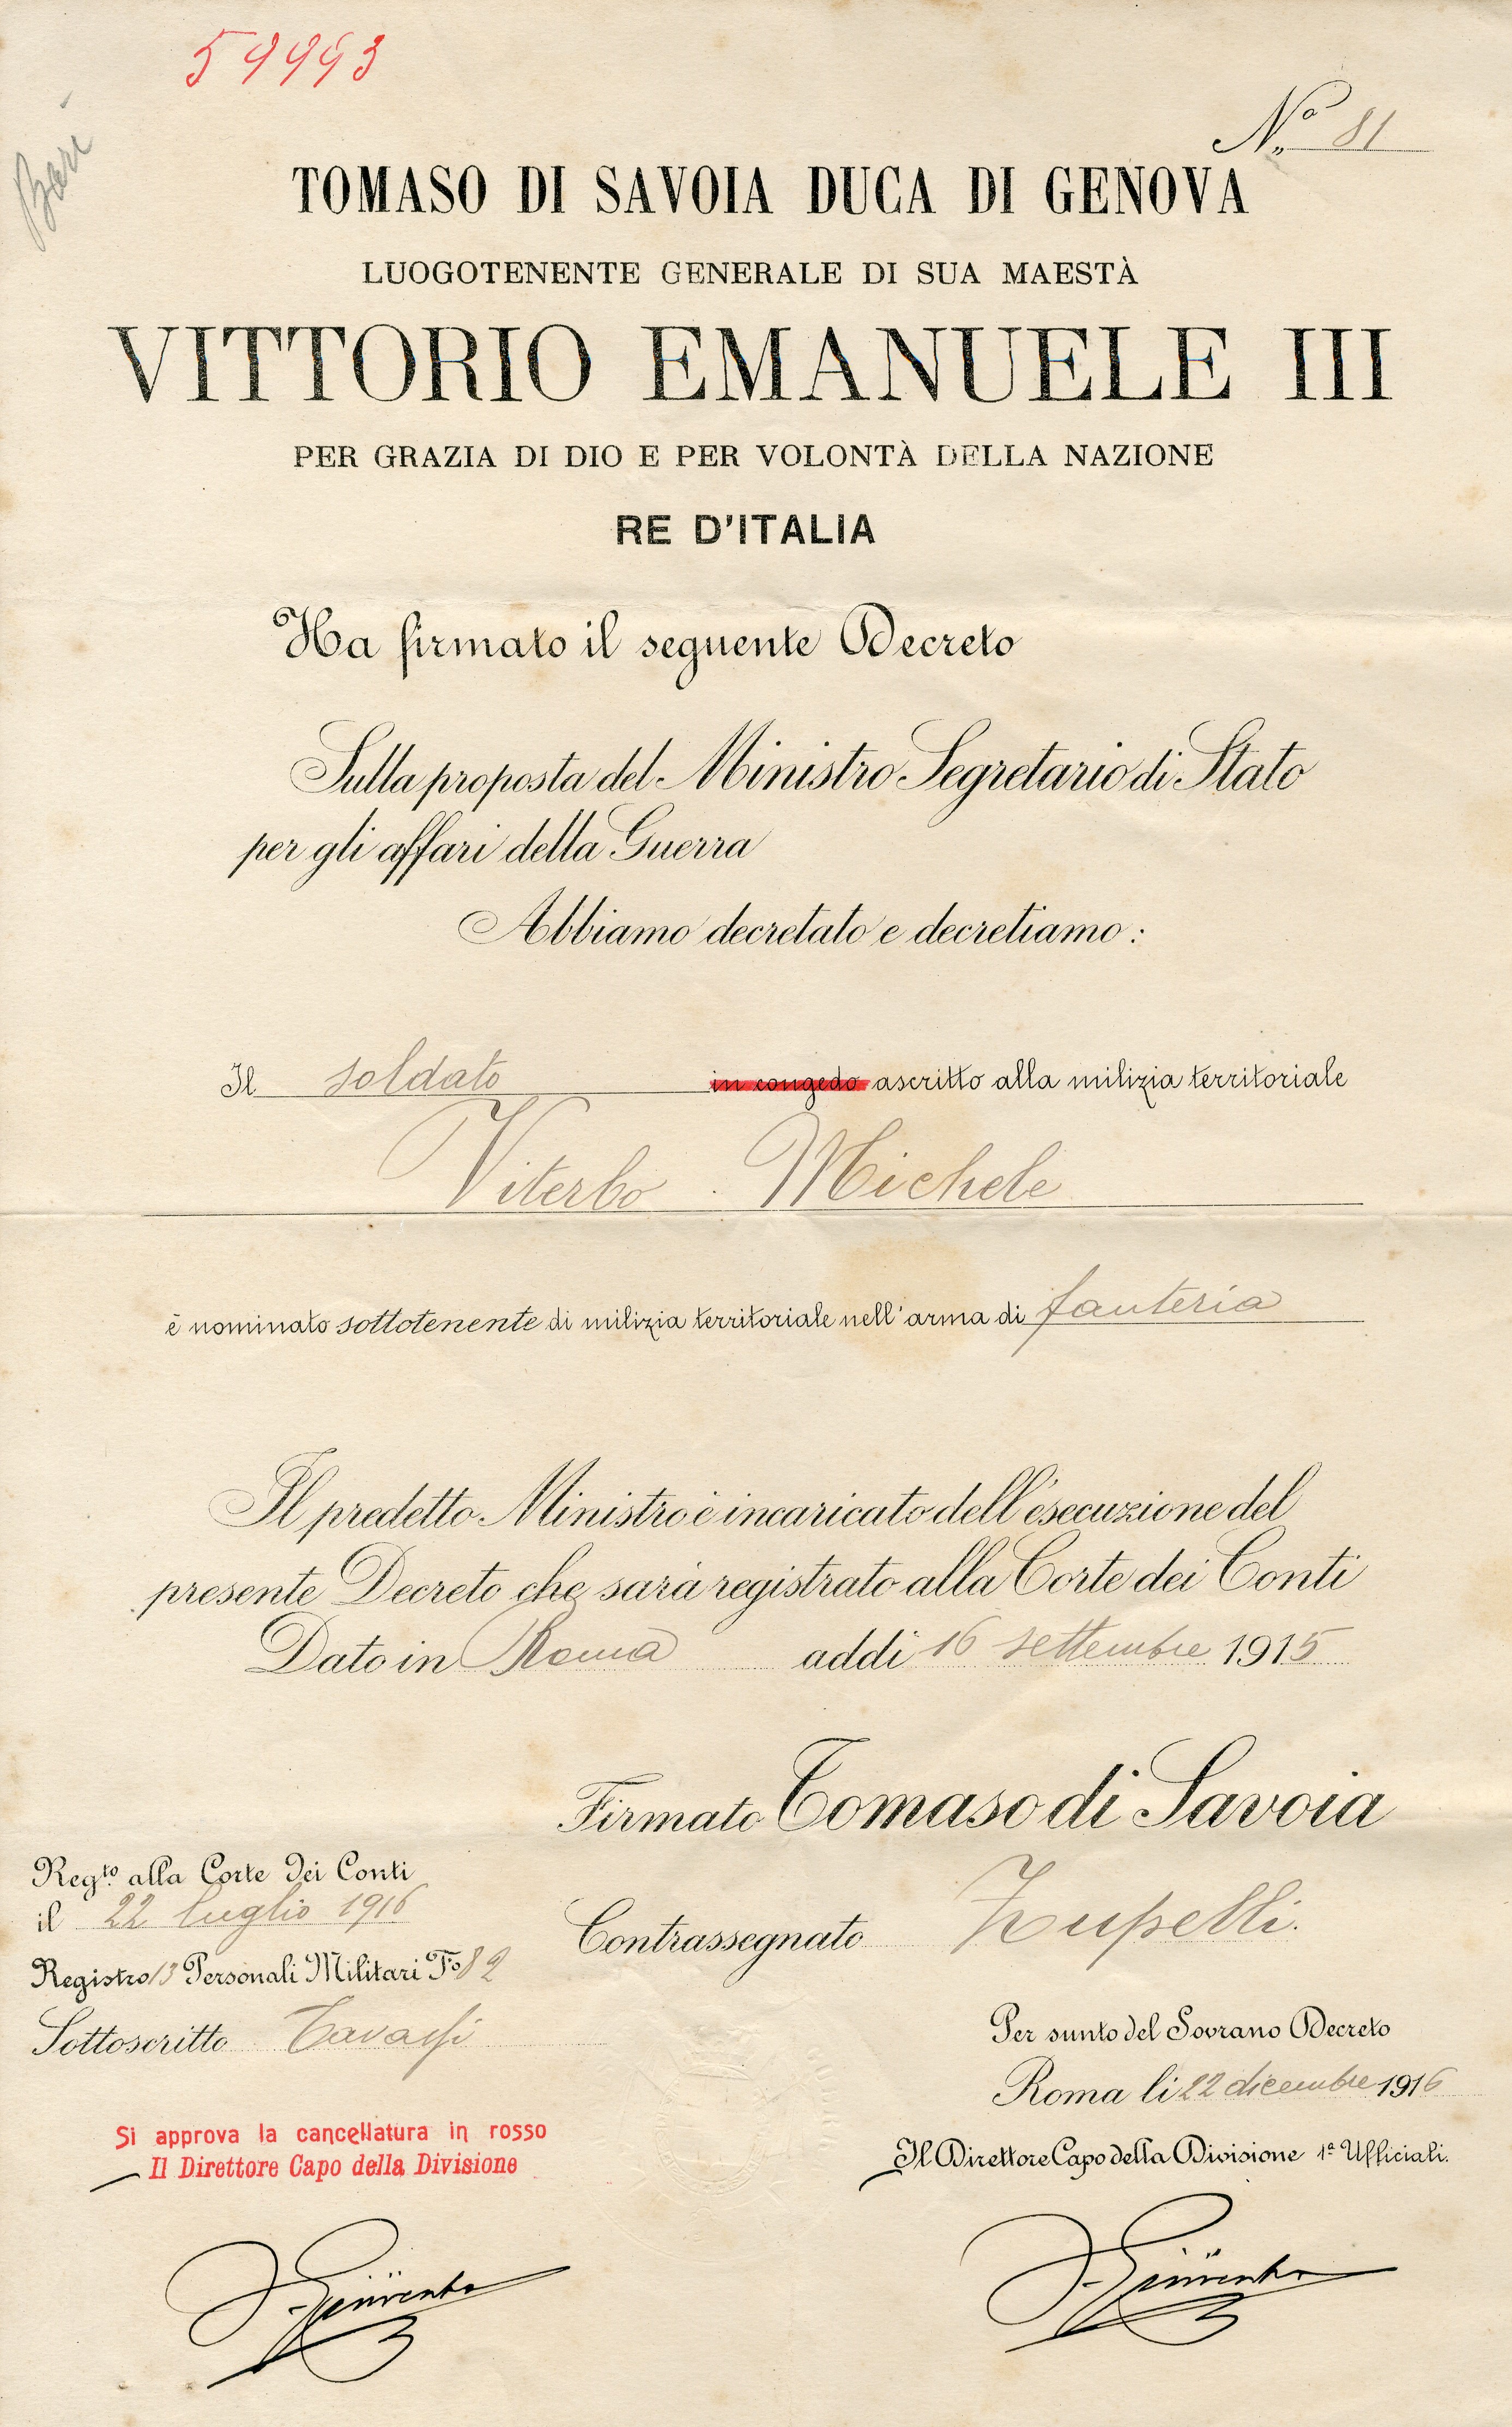 59993
Bari
Nº 81
TOMASO DI SAVOIA DUCA DI GENOVA
LUOGOTENENTE GENERALE DI SUA MAESTÀ
VITTORIO EMANUELE III
PER GRAZIA DI DIO E PER VOLONTÀ DELLA NAZIONE
RE D'ITALIA
Ha firmato il seguente Decreto
Sulla proposta del Ministro Segretario di Stato
per gli affari della Guerra
Abbiamo decretato e decretiamo:
Il soldato in congedo ascritto alla milizia territoriale
Viterbo Michele
è nominato sottotenente di milizia territoriale nell'arma di fanteria
Il predetto Ministro è incaricato dell'esecuzione del
presente Decreto che sarà registrato alla Corte dei Conti
Dato in Roma addì 16 settembre 1915
Firmato Tomaso di Savoia
Contrassegnato Zupelli.
Reg.to alla Corte dei Conti
il 22 luglio 1916
Registro 13 Personali Militari Fo 82
Sottoscritto
Per sunto del Sovrano Decreto
Roma li 22 dicembre 1916
Il Direttore Capo della Divisione 1ª Ufficiali.
Si approva la cancellatura in rosso
Il Direttore Capo della Divisione